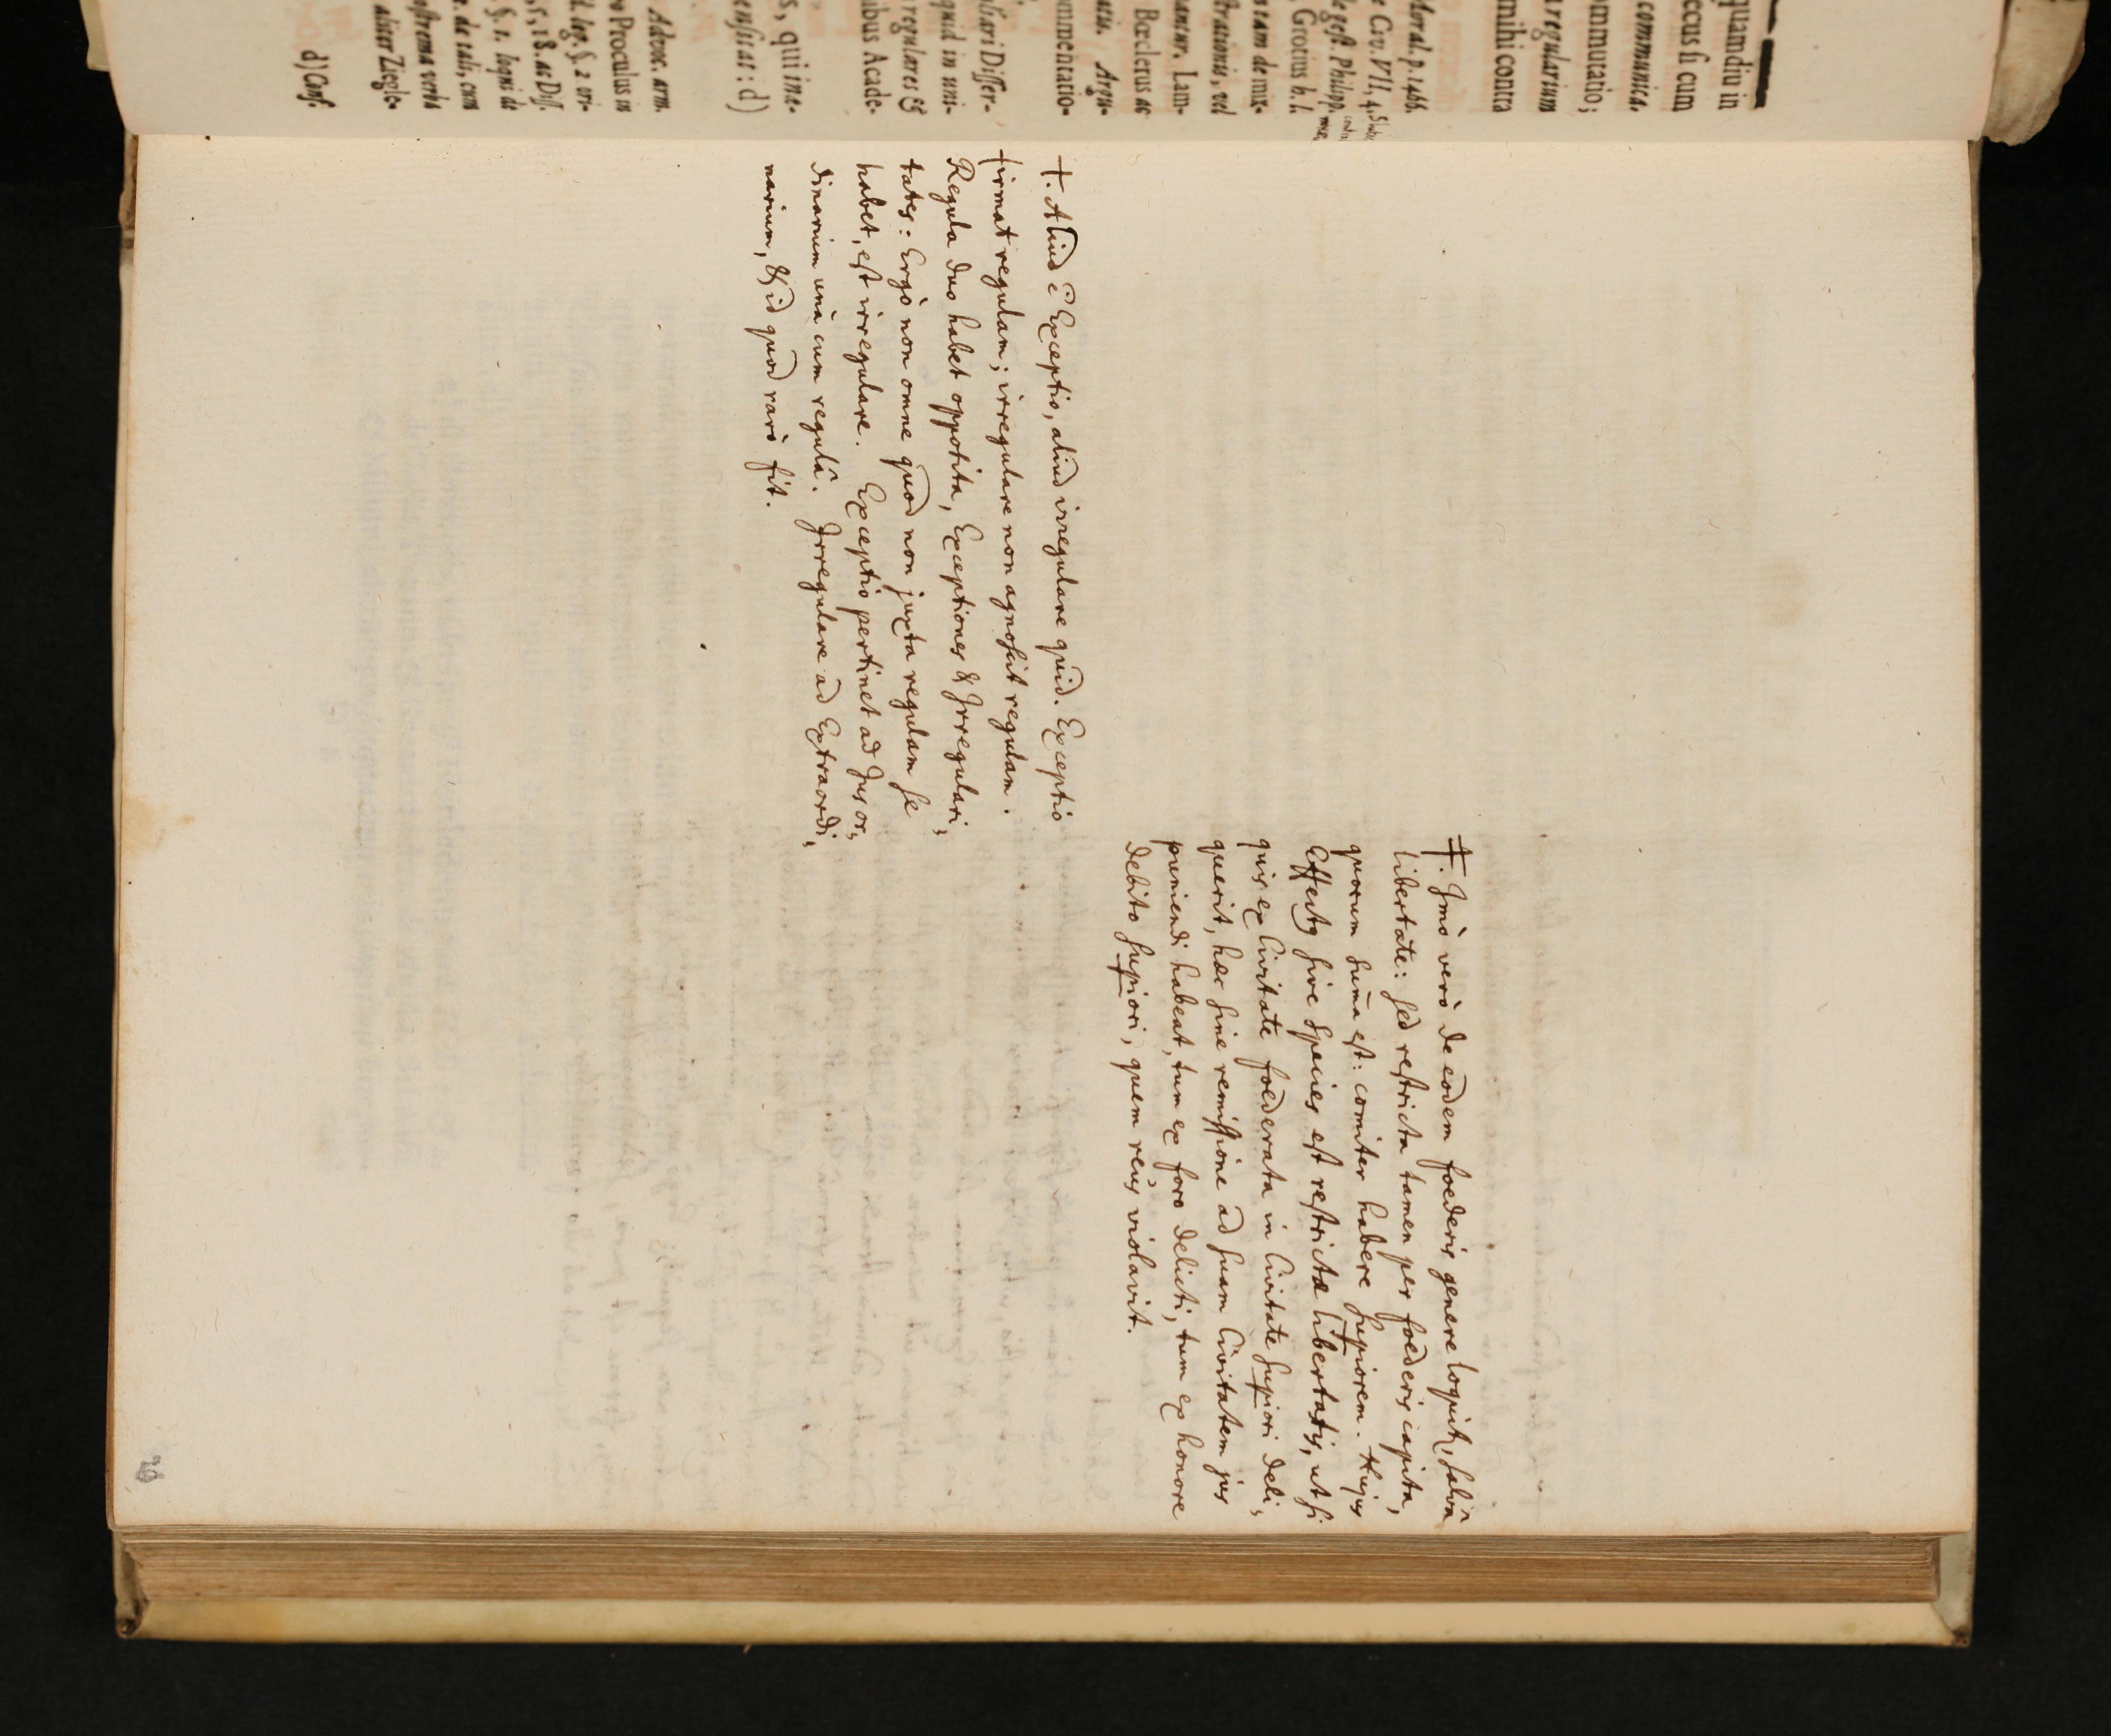 quamdiu in
ecus si cum
communica-
ommutatio;
regularium
mihi contra
Moral. p. 1466.
e Civ. VII, 4.
de gest. Philipp.
Grotius h. l.
tam de mix-
strationis, vel
hantur. Lam-
Bœclerus ac
atu. Argu-
ommentatio-
ulari Disser-
quid in uni-
regulares &
ibus Acade-
s, qui ina-
ensitat: d)
Advoc. arm.
Proculus in
l. leg. §. 2 ori-
5, 18. ac Diss.
§. 1. loqui de
e. de tali, cum
ostrema verba
aliter Ziegle-
d) Conf.
‡. Imò verò de eodem foederis genere loquit, salvâ
libertate: sed restricta tamen per foederis capita,
quorum suma est: comiter habere supiorem. Hujus
Effectus sive Species est restrictæ libertatis, ut si
quis ex Civitate foederata in Civitate supiori deli,
querit, hæc sine remissione ad suam Civitatem jus
puniendi habeat, tum ex foro delicti, tum ex honore
debito supiori, quem reus violavit.
†. Aliud ē Exceptio, aliud irregulare quid. Exceptio
firmat regulam; irregulare non agnoscit regulam.
Regula duo habet opposita, Exceptiones & Irregulari,
tates: Ergò non omne quod non juxta regulam se
habet, est irregulare. Exceptio pertinet ad Jus or,
dinarium unà cum regulâ. Irregulare ad Extraordi,
narium, & id quod rarò fit.